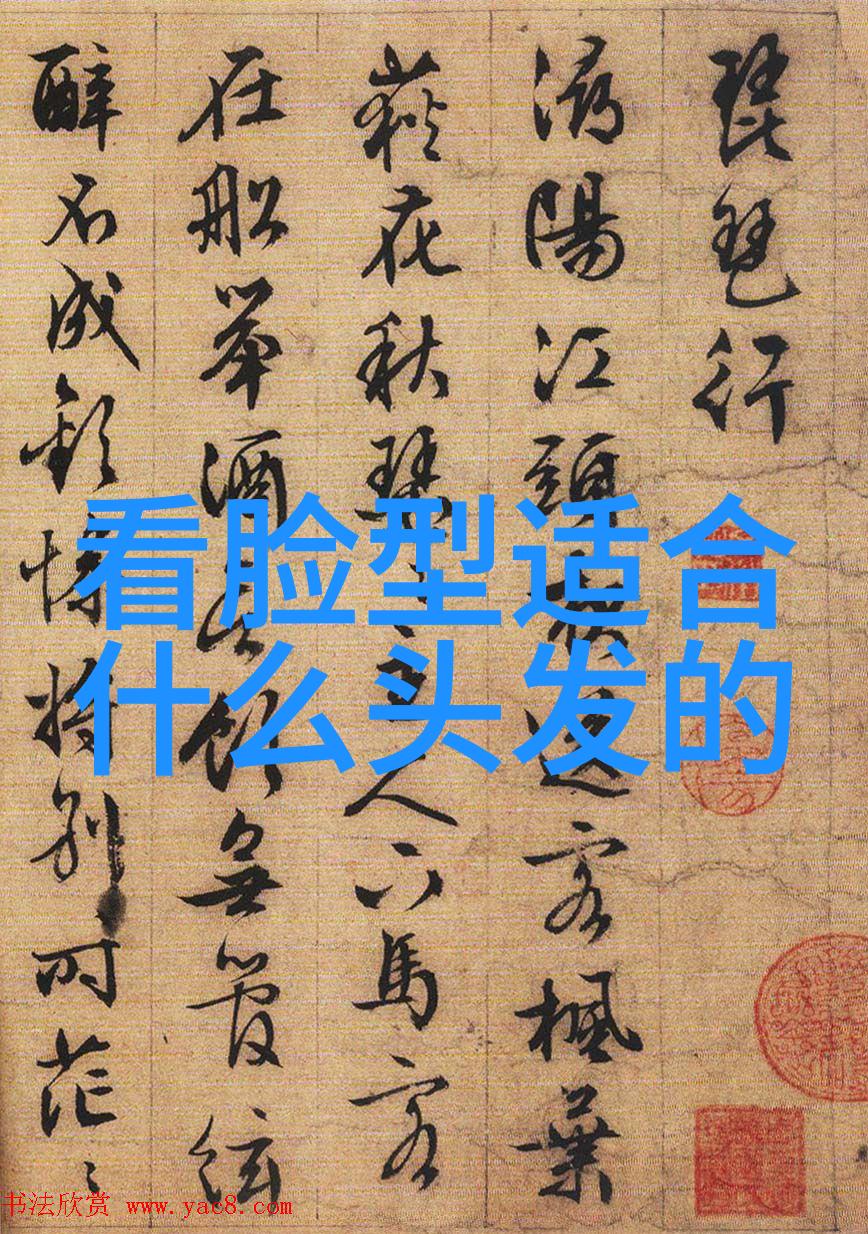 琵琶行
潯陽江頭夜送客楓葉
荻花秋瑟々主人下馬客
在船舉酒欲飲無管絃
醉不成歡慘將別々時茫々
看脸型适合
什么头发的
书法欣赏 www.yac8.com